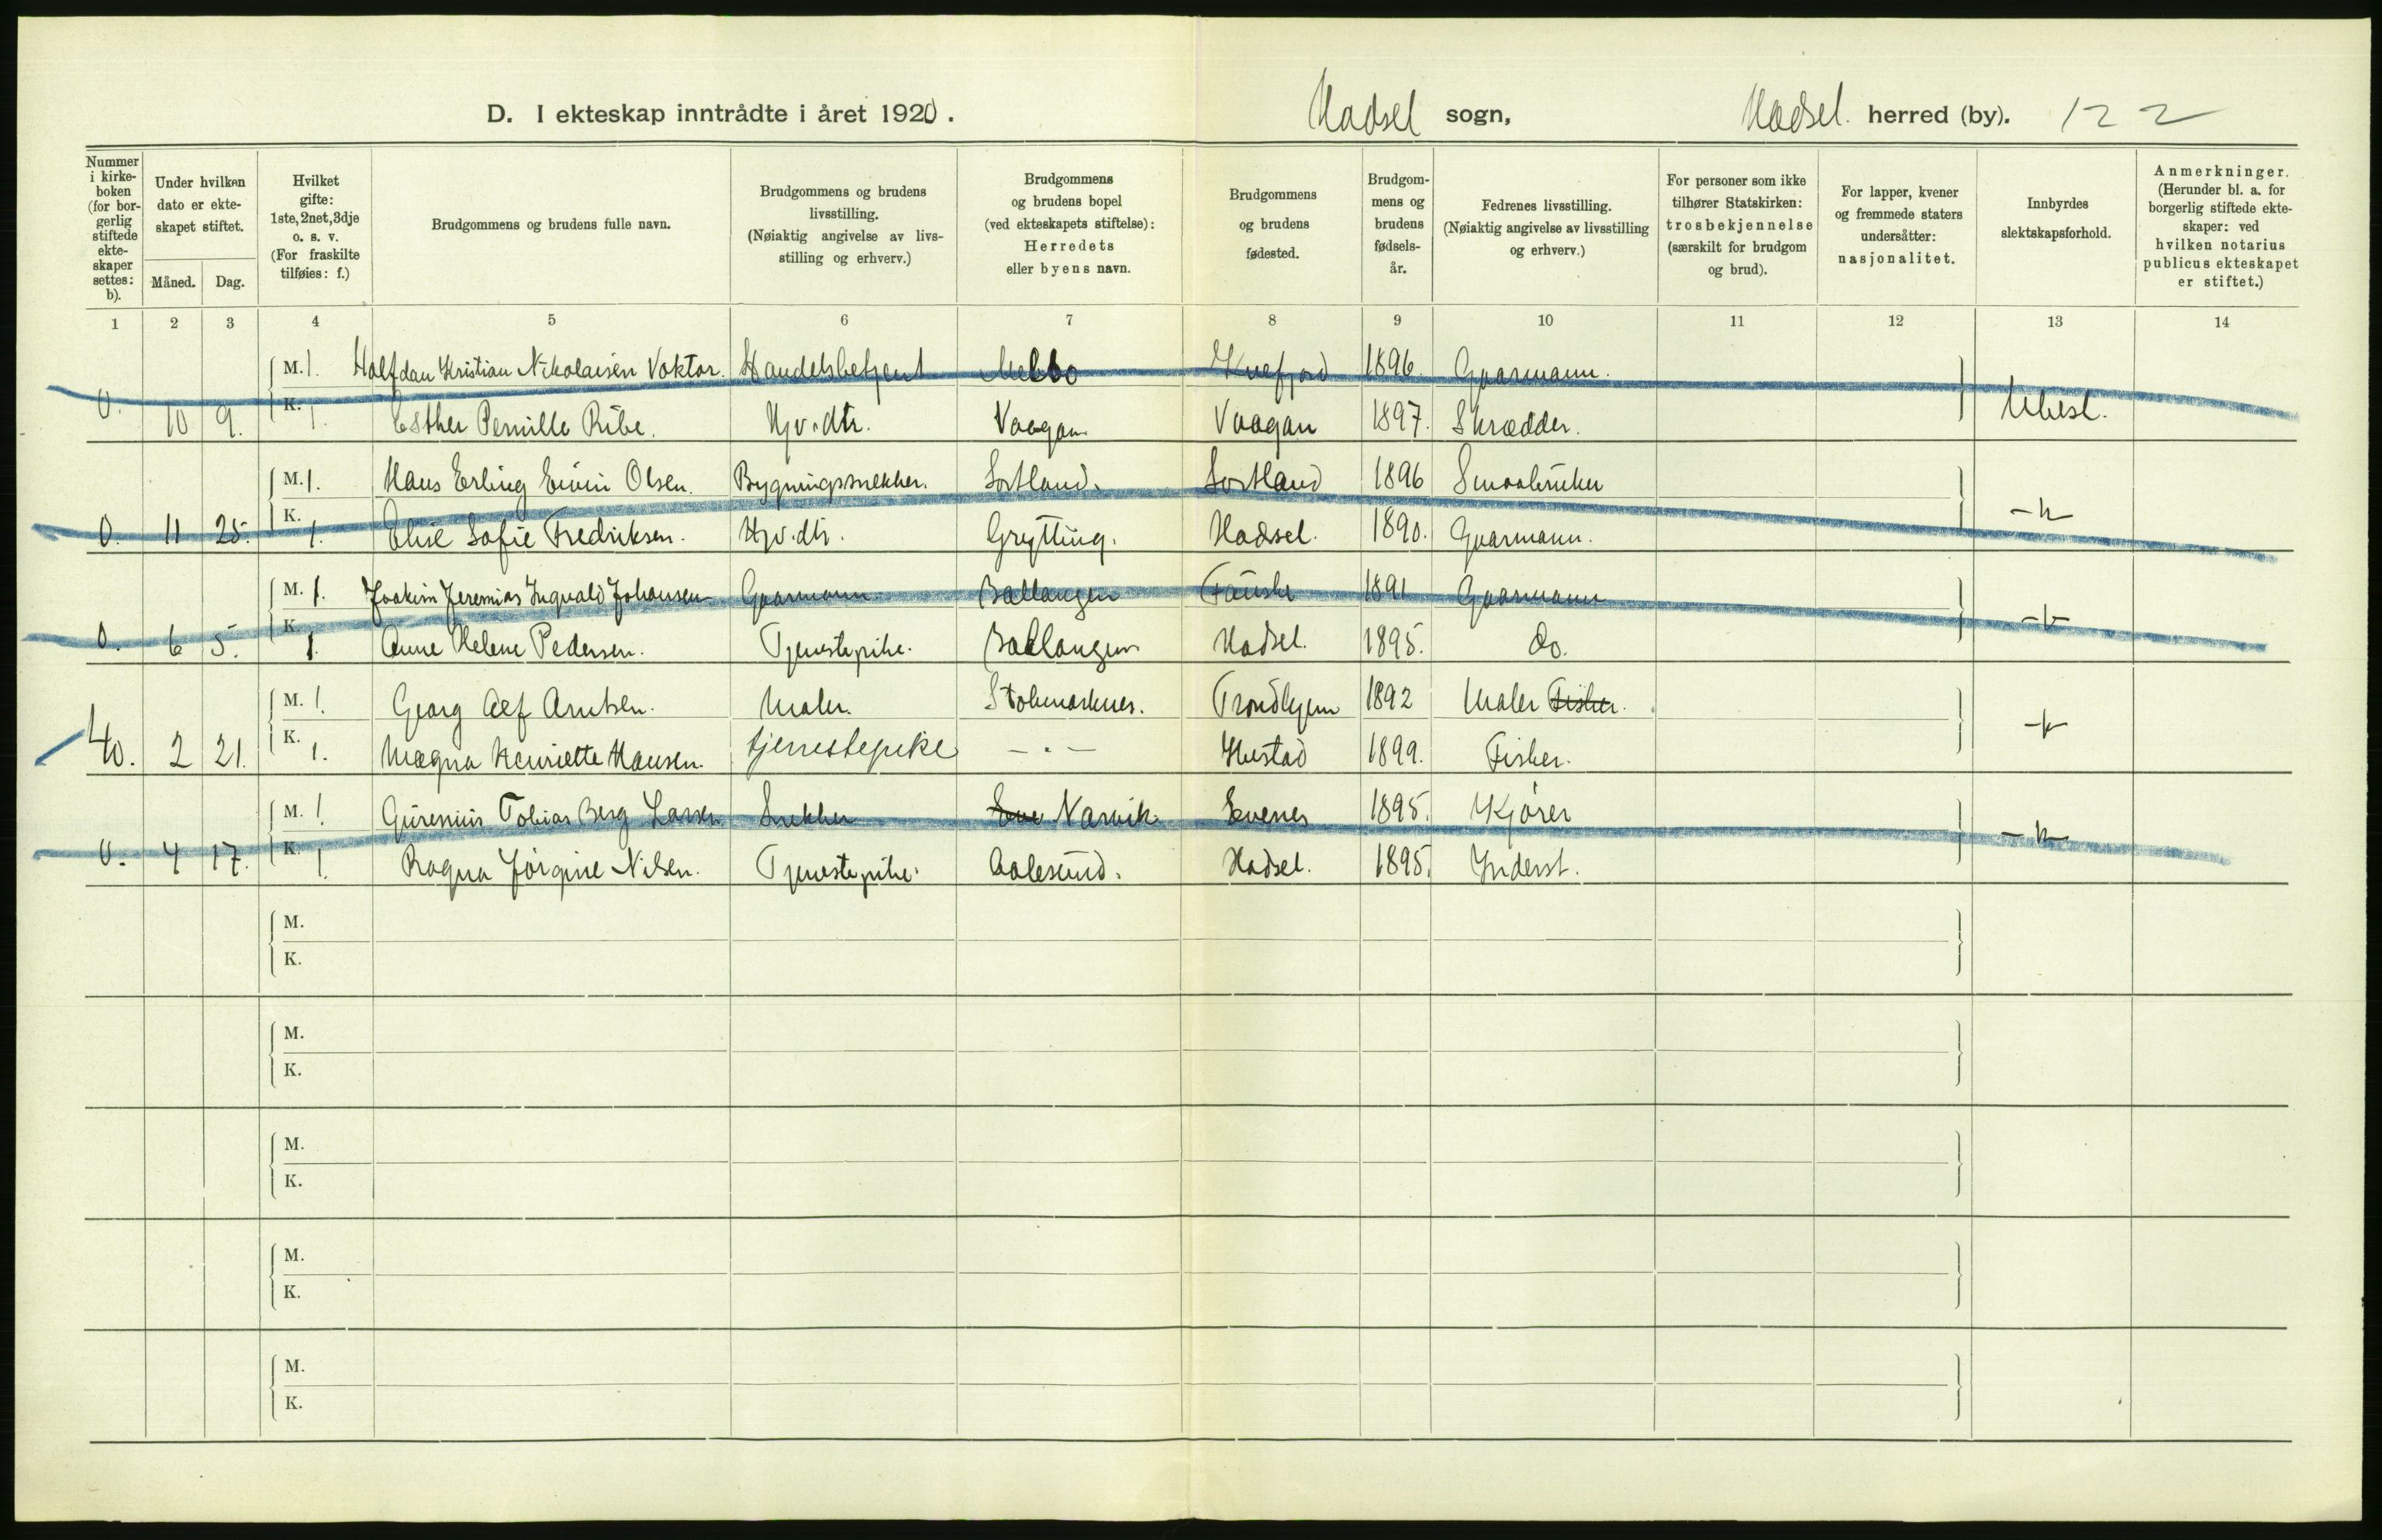 D. I ekteskap inntrådte i året 1920. Hadsel sogn, Hadsel. herred (by). 122
Nummer i kirkeboken (for borgerlig stiftede ekteskaper settes: b).
Under hvilken dato er ekteskapet stiftet.
Måned. Dag.
Hvilket gifte: 1ste, 2net, 3dje o. s. v. (For fraskilte tilføies: f.)
Brudgommens og brudens fulle navn.
Brudgommens og brudens livsstilling. (Nøiaktig angivelse av livsstilling og erhverv.)
Brudgommens og brudens bopel (ved ekteskapets stiftelse): Herredets eller byens navn.
Brudgommens og brudens fødested.
Brudgommens og brudens fødselsår.
Fedrenes livsstilling. (Nøiaktig angivelse av livsstilling og erhverv.)
For personer som ikke tilhører Statskirken: trosbekjennelse (særskilt for brudgom og brud).
For lapper, kvener og fremmede staters undersåtter: nasjonalitet.
Innbyrdes slektskapsforhold.
Anmerkninger. (Herunder bl. a. for borgerlig stiftede ekteskaper: ved hvilken notarius publicus ekteskapet er stiftet.)
1 2 3 4 5 6 7 8 9 10 11 12 13 14
M. 1. Halfdan Kristian Nikolaisen Voktor. Handelsbetjent Melbo Kvefjord 1896. Gaarmann.
0. 10 9. K. 1. Esther Pernille Ribe. Hjv.dtr. Vaagan Vaagan 1897. Skrædder. Ubesl.
M. 1. Hans Erling Olsen. Bygningssnekker. Sortland. Sortland 1896 Smaabruker
0. 11 25. K. 1. Elise Sofie Fredriksen. Hjv.dtr. Grytting. Hadsel. 1890. Gaarmann. -"-
M. 1. Joakim Jeremias Ingvald Johansen Gaarmann Ballangen Fauske 1891 Gaarmann
0. 6 5. K. 1. Anne Helene Pedersen. Tjenestepike. Ballangen Hadsel. 1895. do. -"-
M. 1. Georg Alf Arntsen. Maler. Stokmarknes. Trondhjem 1892 Maler Fisker.
40. 2 21. K. 1. Magna Henriette Hansen. tjenestepike - " - Hustad 1899. Fisker. -"-
M. 1. Tobias Berg Larsen Snekker Eve Narvik Evenes 1895. Kjører
0. 4 17. K. 1. Ragna Jørgine Nilsen. Tjenestepike. Aalesund. Hadsel. 1895. Inderst. -"-
M.
K.
M.
K.
M.
K.
M.
K.
M.
K.